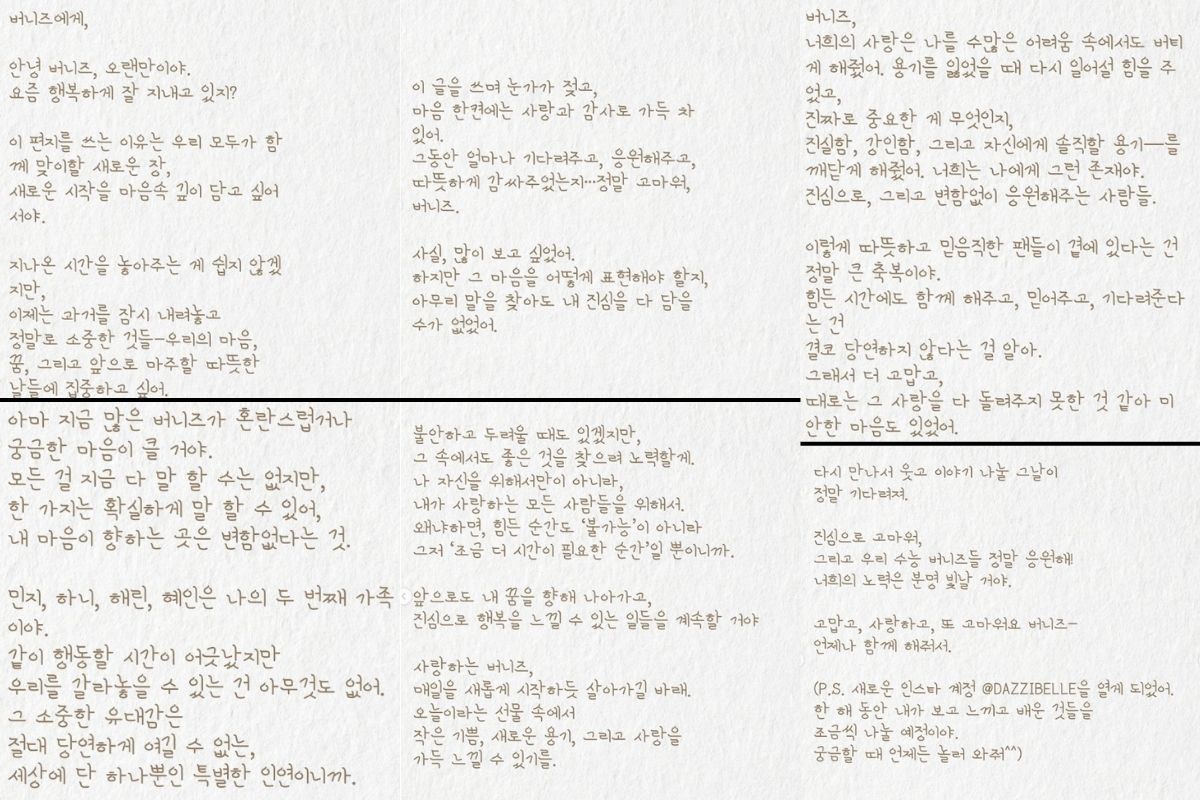 버니즈에게,
안녕 버니즈, 오랜만이야.
요즘 행복하게 잘 지내고 있지?
이 편지를 쓰는 이유는 우리 모두가 함
께 맞이할 새로운 장,
새로운 시작을 마음속 깊이 담고 싶어
서야.
지나온 시간을 놓아주는 게 쉽지 않겠
지만,
이제는 과거를 잠시 내려놓고
정말로 소중한 것들-우리의 마음,
꿈, 그리고 앞으로 마주할 따뜻한
날들에 집중하고 싶어.
이 글을 쓰며 눈가가 젖고,
마음 한켠에는 사랑과 감사로 가득 차
있어.
그동안 얼마나 기다려주고, 응원해주고,
따뜻하게 감싸주었는지…정말 고마워,
버니즈.
사실, 많이 보고 싶었어.
하지만 그 마음을 어떻게 표현해야 할지,
아무리 말을 찾아도 내 진심을 다 담을
수가 없었어.
버니즈,
너희의 사랑은 나를 수많은 어려움 속에서도 버티
게 해줬어. 용기를 잃었을 때 다시 일어설 힘을 주
었고,
진짜로 중요한 게 무엇인지,
진실함, 강인함, 그리고 자신에게 솔직할 용기—를
깨닫게 해줬어. 너희는 나에게 그런 존재야.
진심으로, 그리고 변함없이 응원해주는 사람들.
이렇게 따뜻하고 믿음직한 팬들이 곁에 있다는 건
정말 큰 축복이야.
힘든 시간에도 함께 해주고, 믿어주고, 기다려준다
는 건
결코 당연하지 않다는 걸 알아.
그래서 더 고맙고,
때로는 그 사랑을 다 돌려주지 못한 것 같아 미
안한 마음도 있었어.
아마 지금 많은 버니즈가 혼란스럽거나
궁금한 마음이 클 거야.
모든 걸 지금 다 말 할 수는 없지만,
한 가지는 확실하게 말 할 수 있어,
내 마음이 향하는 곳은 변함없다는 것.
민지, 하니, 해린, 혜인은 나의 두 번째 가족
이야.
같이 행동할 시간이 어긋났지만
우리를 갈라놓을 수 있는 건 아무것도 없어.
그 소중한 유대감은
절대 당연하게 여길 수 없는,
세상에 단 하나뿐인 특별한 인연이니까.
불안하고 두려울 때도 있겠지만,
그 속에서도 좋은 것을 찾으려 노력할게.
나 자신을 위해서만이 아니라,
내가 사랑하는 모든 사람들을 위해서.
왜냐하면, 힘든 순간도 ‘불가능’이 아니라
그저 ‘조금 더 시간이 필요한 순간’일 뿐이니까.
앞으로도 내 꿈을 향해 나아가고,
진심으로 행복을 느낄 수 있는 일들을 계속할 거야
사랑하는 버니즈,
매일을 새롭게 시작하듯 살아가길 바래.
오늘이라는 선물 속에서
작은 기쁨, 새로운 용기, 그리고 사랑을
가득 느낄 수 있기를.
다시 만나서 웃고 이야기 나눌 그날이
정말 기다려져.
진심으로 고마워,
그리고 우리 수능 버니즈들 정말 응원해!
너희의 노력은 분명 빛날 거야.
고맙고, 사랑하고, 또 고마워요 버니즈-
언제나 함께 해줘서.
(P.S. 새로운 인스타 계정 @DAZZIBELLE을 열게 되었어.
한 해 동안 내가 보고 느끼고 배운 것들을
조금씩 나눌 예정이야.
궁금할 때 언제든 놀러 와줘^^)